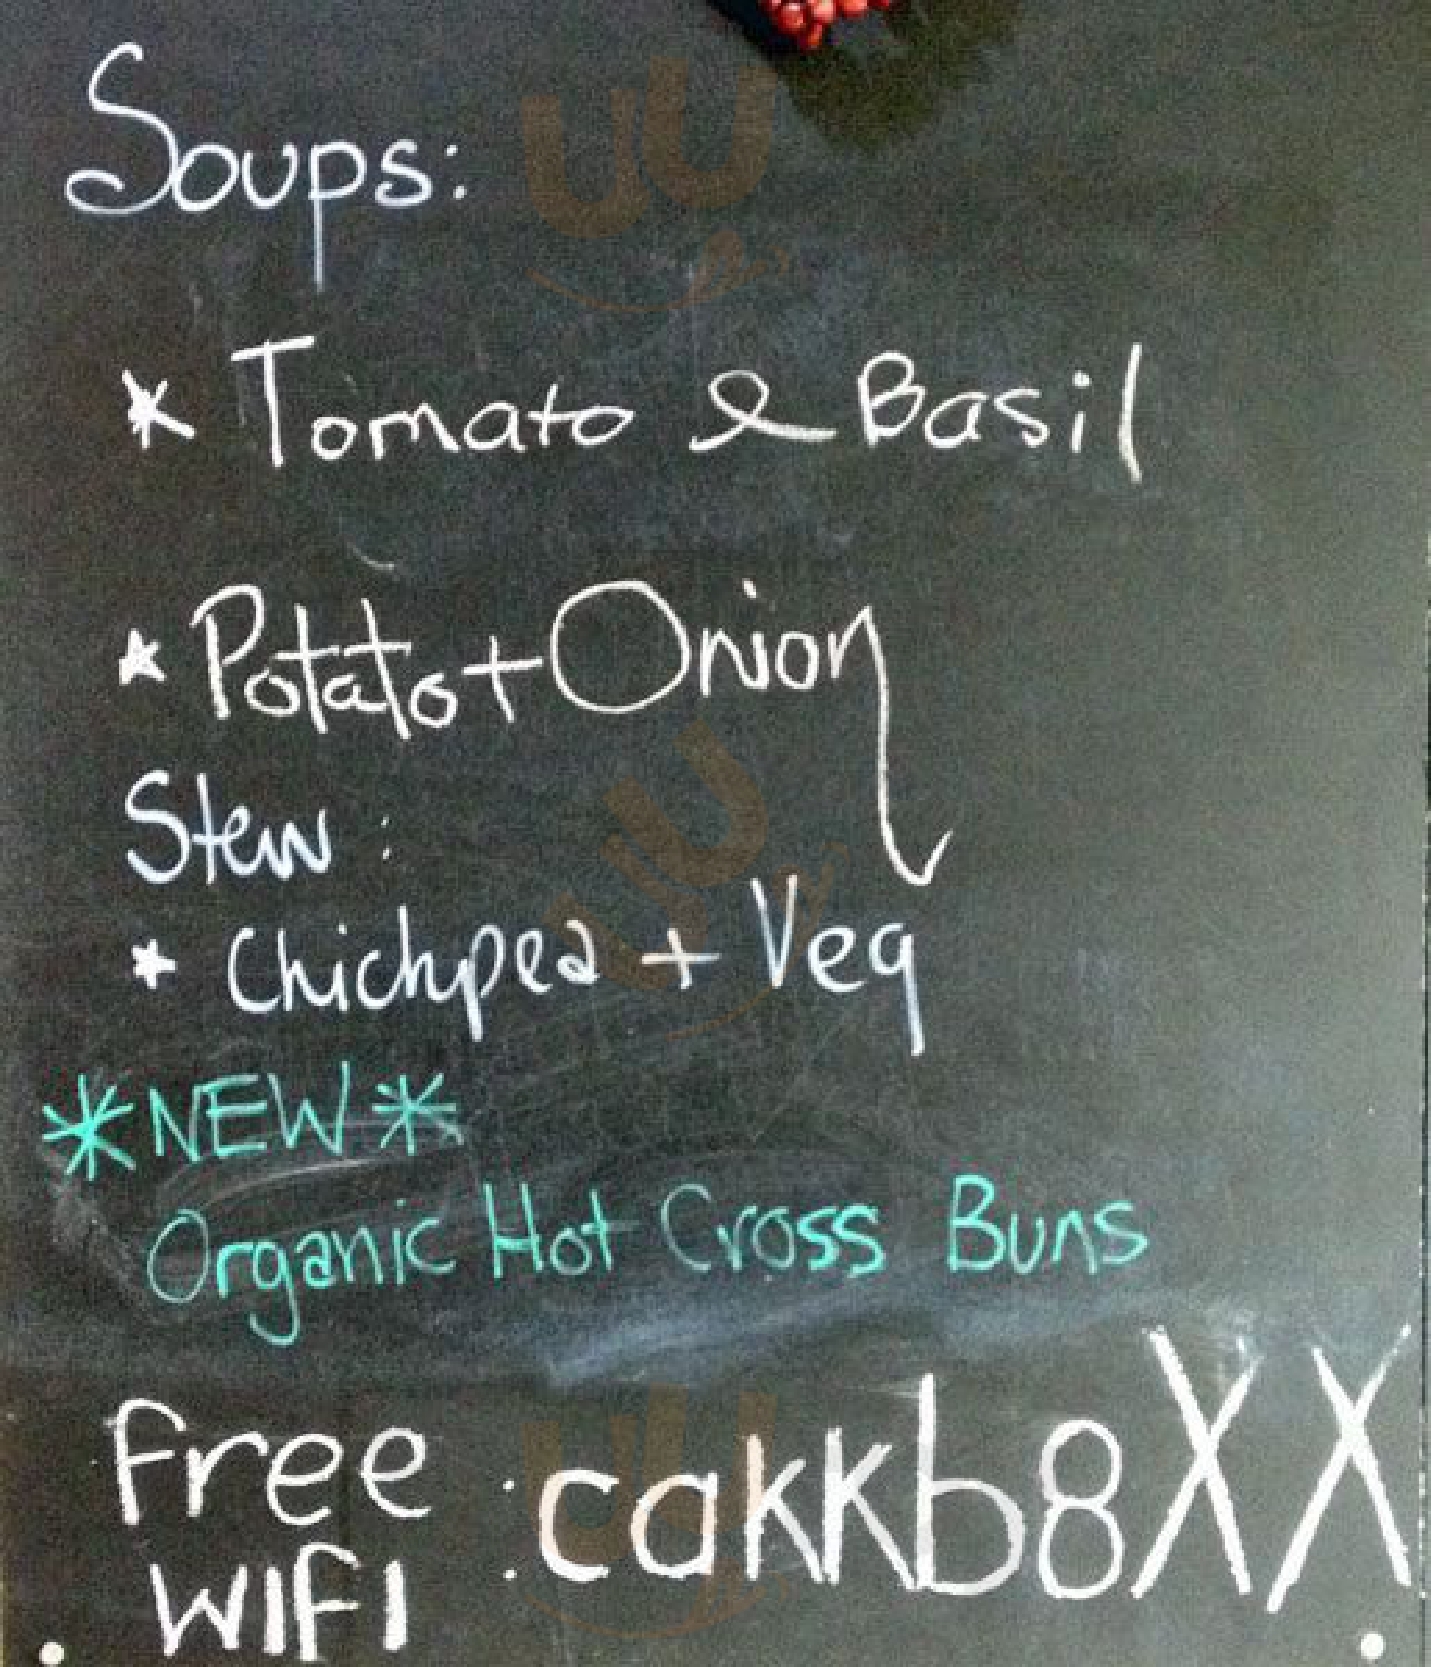 Soups:
* Tomato & Basil
* Potato + Onion
Stew :
* Chickpea + Veg
*NEW*
Organic Hot Cross Buns
Free : cakkb8XX
WIFI